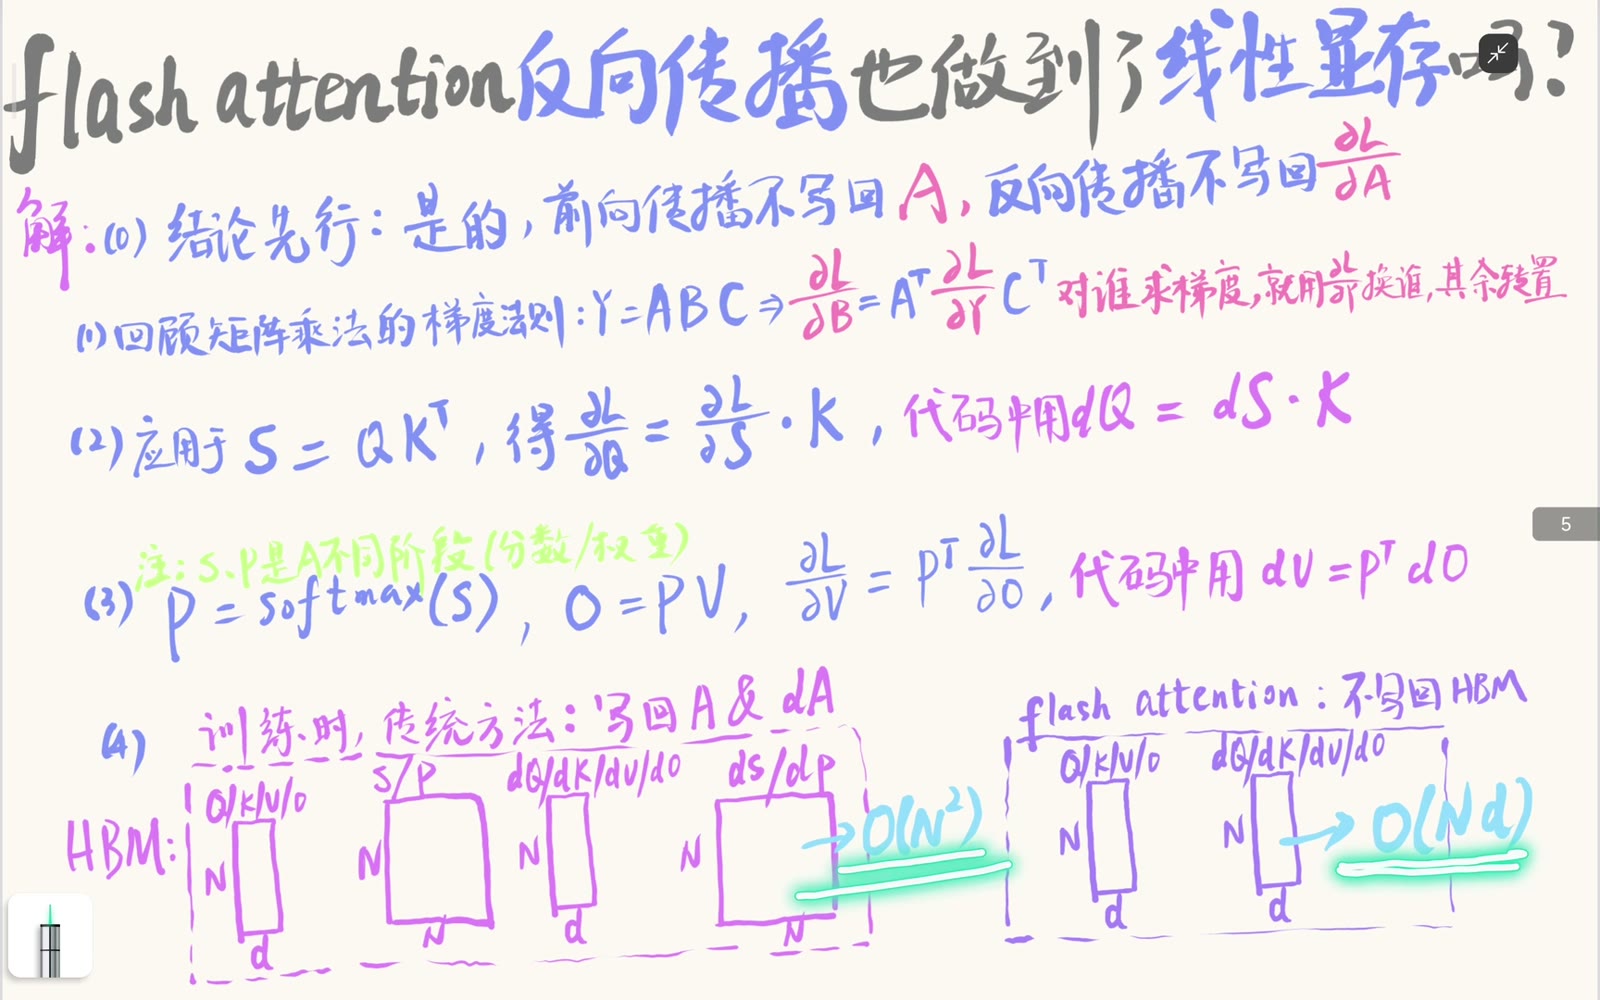 flash attention反向传播也做到了线性显存吗?
解:(0) 结论先行：是的，前向传播不写回 A，反向传播不写回 ∂L/∂A
(1) 回顾矩阵乘法的梯度法则:Y=ABC ⇒ ∂L/∂B = Aᵀ ∂L/∂Y Cᵀ 对谁求梯度,就用∂L/∂Y换谁,其余转置
(2) 应用于 S = QKᵀ , 得 ∂L/∂Q = ∂L/∂S · K , 代码中用dQ = dS · K
注: S、P是A不同阶段(分数/权重)
(3) P = softmax(S) , O = PV, ∂L/∂V = Pᵀ ∂L/∂O , 代码中用 dV = Pᵀ dO
(4) 训练时, 传统方法: 写回 A & dA
flash attention : 不写回 HBM
HBM:
Q/K/V/O
N
d
S/P
N
N
dQ/dK/dV/dO
N
d
dS/dP
N
N
→ O(N²)
Q/K/V/O
N
d
dQ/dK/dV/dO
N
d
→ O(Nd)
5